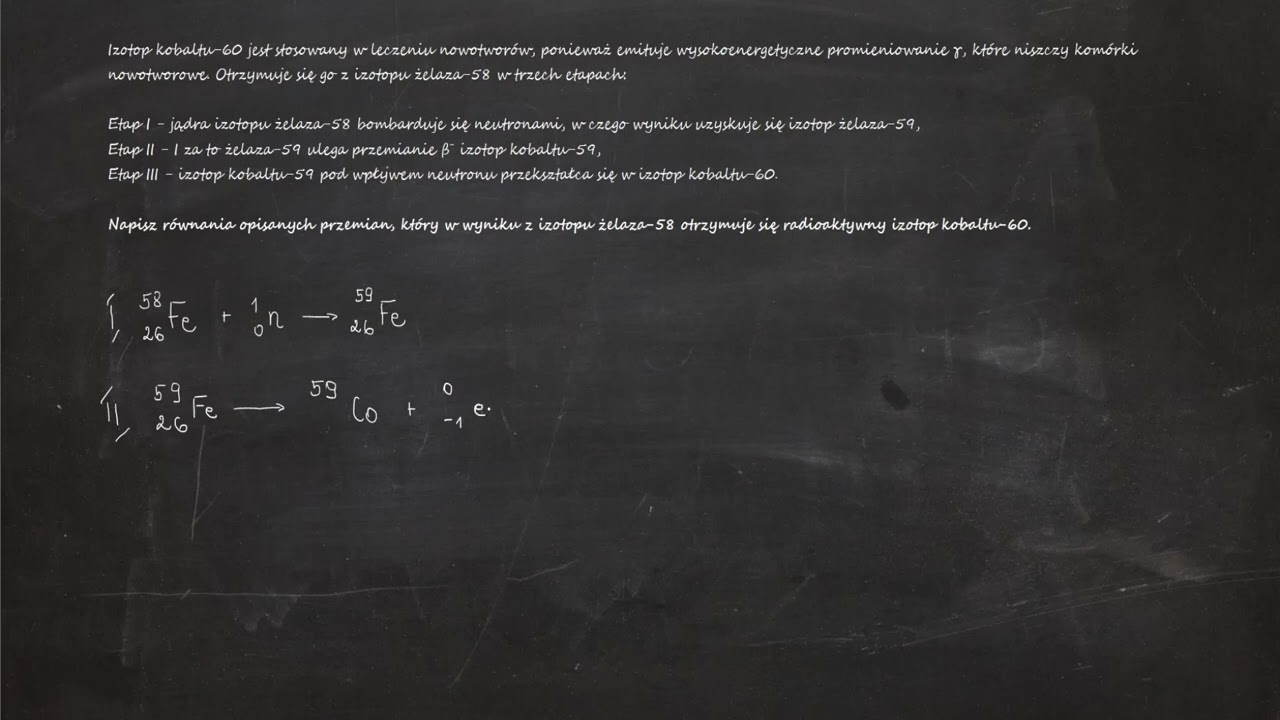 Izotop kobaltu-60 jest stosowany w leczeniu nowotworów, ponieważ emituje wysokoenergetyczne promieniowanie γ, które niszczy komórki
nowotworowe. Otrzymuje się go z izotopu żelaza-58 w trzech etapach:
Etap I - jądra izotopu żelaza-58 bombarduje się neutronami, w czego wyniku uzyskuje się izotop żelaza-59,
Etap II - I za to żelaza-59 ulega przemianie β⁻ izotop kobaltu-59,
Etap III - izotop kobaltu-59 pod wpływem neutronu przekształca się w izotop kobaltu-60.
Napisz równania opisanych przemian, który w wyniku z izotopu żelaza-58 otrzymuje się radioaktywny izotop kobaltu-60.
I ⁵⁸₂₆Fe + ¹₀n → ⁵⁹₂₆Fe
II ⁵⁹₂₆Fe → ⁵⁹Co + ⁰₋₁e.